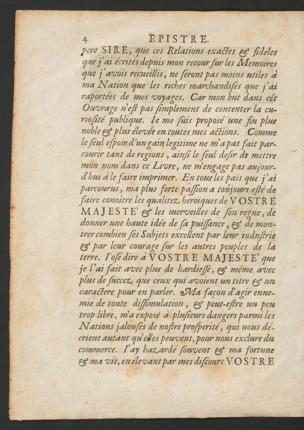 4 EPISTRE.
pere SIRE, que ces Relations exactes & fideles
que j'ai écrites depuis mon retour sur les Memoires
que j'avois recueillis, ne seront pas moins utiles à
ma Nation que les riches marchandises que j'ai
raportées de mes voyages. Car mon but dans cét
Ouvrage n'est pas simplement de contenter la cu-
riosité publique. Je me suis proposé une fin plus
noble & plus élevée en toutes mes actions. Comme
le seul espoir d'un gain legitime ne m'a pas fait par-
courir tant de regions, ainsi le seul desir de mettre
mon nom dans ce Livre, ne m'engage pas aujour-
d'hui à le faire imprimer. En tous les païs que j'ai
parcourus, ma plus forte passion a toujours esté de
faire conoitre les qualitez heroiques de VOSTRE
MAJESTE' & les merveilles de son regne, de
donner une haute idée de sa puissance, & de mon-
trer combien ses Sujets excellent par leur industrie
& par leur courage sur les autres peuples de la
terre. J'ose dire à VOSTRE MAJESTE' que
je l'ai fait avec plus de hardiesse, & même avec
plus de succez, que ceux qui avoient un titre & un
caractere pour en parler. Ma façon d'agir enne-
mie de toute dissimulation, & peut-estre un peu
trop libre, m'a exposé à plusieurs dangers parmi les
Nations jalouses de nostre prosperité, qui nous dé-
crient autant qu'elles peuvent, pour nous exclure du
commerce. J'ay hazardé souvent & ma fortune
& ma vie, en élevant par mes discours VOSTRE